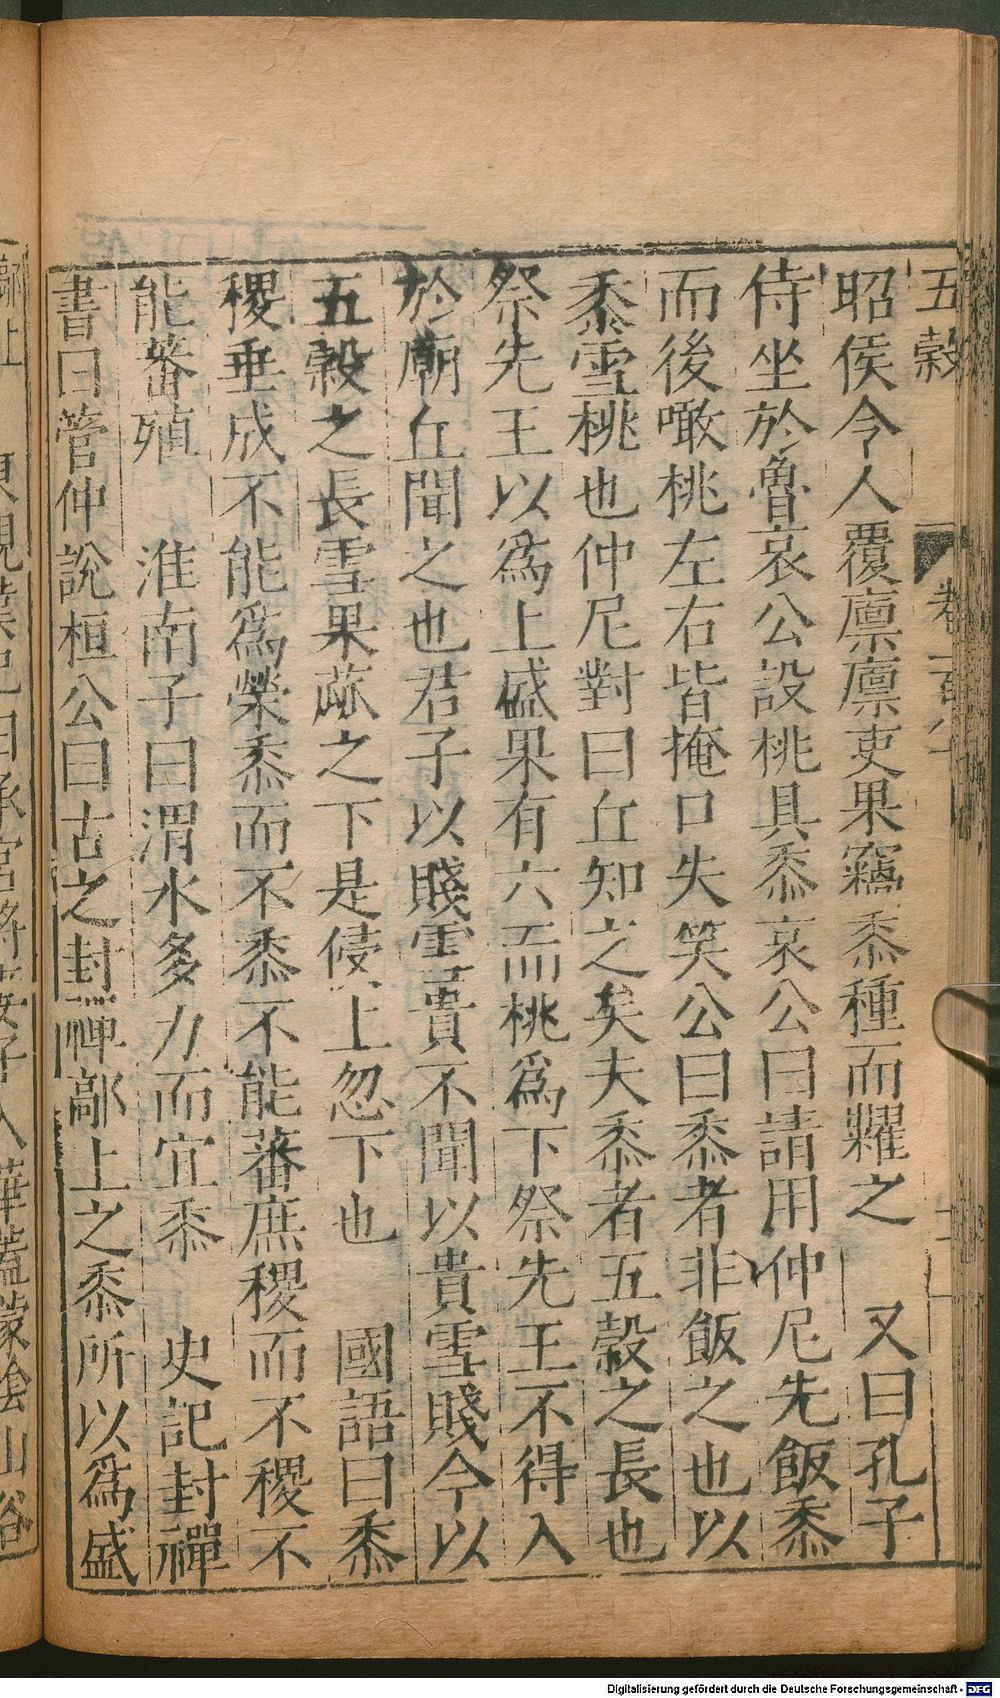 五穀
昭侯令人覆廪廪吏果竊黍種而糶之　又曰孔子
侍坐於魯哀公設桃具黍哀公曰請用仲尼先飯黍
而後噉桃左右皆掩口失笑公曰黍者非飯之也以
黍雪桃也仲尼對曰丘知之矣夫黍者五穀之長也
祭先王以爲上盛果有六而桃爲下祭先王不得入
於廟丘聞之也君子以賤雪貴不聞以貴雪賤今以
五穀之長雪果蓏之下是侵上忽下也　國語曰黍
稷垂成不能爲榮黍而不黍不能蕃廡稷而不稷不
能蕃殖　淮南子曰渭水多力而宜黍　史記封禪
書曰管仲說桓公曰古之封禪鄗上之黍所以爲盛
Digitalisierung gefördert durch die Deutsche Forschungsgemeinschaft - DFG